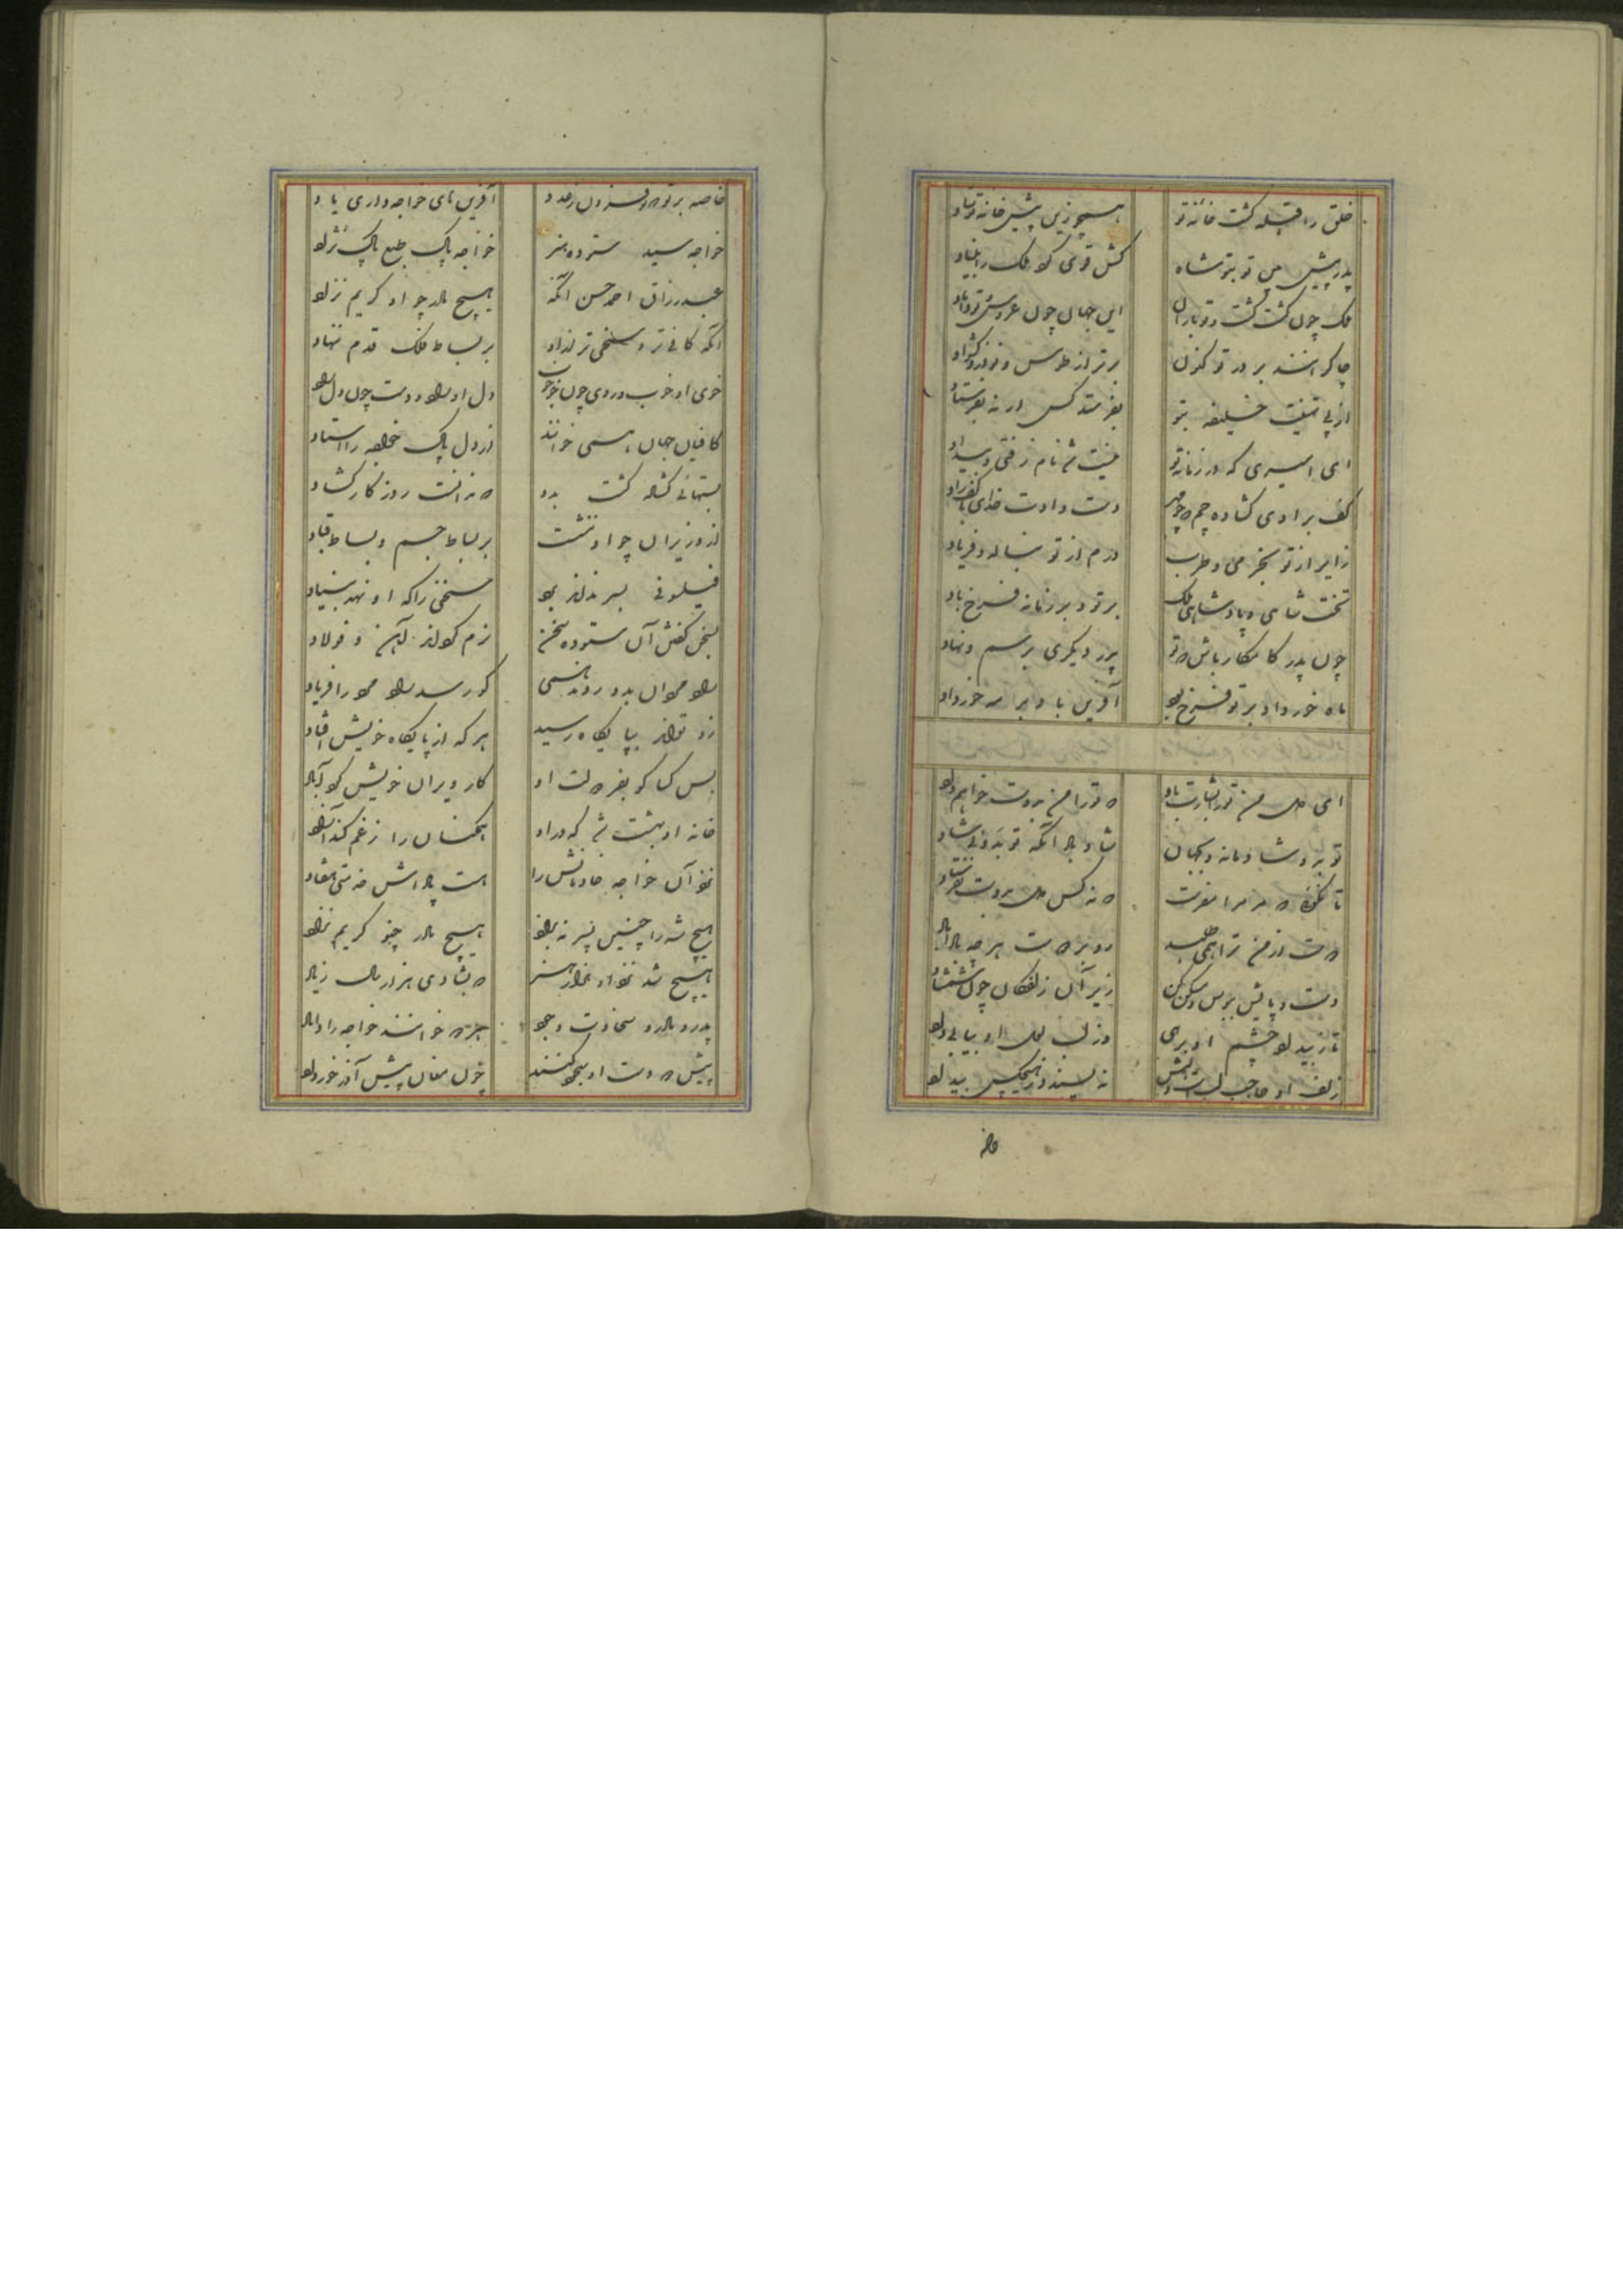 خلق را قبله گشت خانه تو همچو زین پیش خانه نوشاد
پدر پیش بین تو بتو شاه کش قوی کرد ملک را بنیاد
ملک چون کشت گشت و تو باران این جهان چون عروس و تو داماد
چاکرانند بر در تو کنون برتر از طوس و نوذر و کشواد
از پی تهنیت خلیفه بتو بفرستد کس ار نه بفرستاد
ای امیری که در زمانه تو نیست شد نام زفتی و بیداد
کف برادی گشاده چم و چو مهر دست دادت خدای با کف راد
زایر از تو بخرمی و طرب درم از تو بناله و فریاد
تخت شاهی و پادشاهی ملک بر تو و بر زمانه فرخ باد
چون پدر کامکار باش که تو پدر دیگری برسم و نهاد
ماه خرداد بر تو فرخ باد آفرین باد بر مه خرداد
ای دل من ترا بشارت باد که ترا من بدوست خواهم داد
تو بدو شادمانه ای بجهان شاد باد آنکه تو بدوئی شاد
تا نگوئی که مر مرا مفرست که نه کس دل بدوست نفرستاد
دوست از من ترا همی طلبد رو بر دوست هر چه بادا باد
دست و پایش ببوس و مسکن کن زیر آن زلفکان چون شمشاد
تا ز بیداد چشم او برهی وز لب لعل او بیابی داد
زلف او حاجب لبست و لبش نه پسندد ز هیچکس بیداد
خاصه
خاصه بر تو که تو فزون ز عدد آفرینهای خواجه داری یاد
خواجه سید ستوده هنر خواجه پاک طبع پاک نژاد
عبد رزاق احمد حسن آنکه هیچ مادر چو او کریم نزاد
آنکه کافی تر و سخی تر ازو بر بساط ملک قدم ننهاد
خوی او خوب و روی چون خو خوب دل او راد و دست چون دل راد
کافیان جهان همی خوانند از دل پاک خواجه را استاد
بستهائی گشاده گشت بدو که ندانست روزگار گشاد
از وزیران چو او نشست بر بساط جم و بساط قباد
فیلسوفی بسر نداند برد سخنی را که او نهد بنیاد
بسخن گفتن آن ستوده سخن نرم کرداند آهن و فولاد
رادمردان بدو روند همی کو رسد راد مرد را فریاد
زو تواند بپایگاه رسید هر که از پایگاه خویش افتاد
بس کسا کو بفر دولت او کار ویران خویش کرد آباد
خانه او بهشت شد که درو همگنان را ز غم کند آزاد
نزد آن خواجه خادمانش را هست پاداش خدمتی هفتاد
هیچ شه را چنین پسر نبود هیچ مادر چنو کریم نزاد
هیچ شه نزد او نماند هنر که بشادی هزار سال زیاد
پدر و مادر و سخاوت و جود هر دو خوانند خواجه را داماد
پیش دو دست او سجود کنند چون مغان پیش آذر خرداد